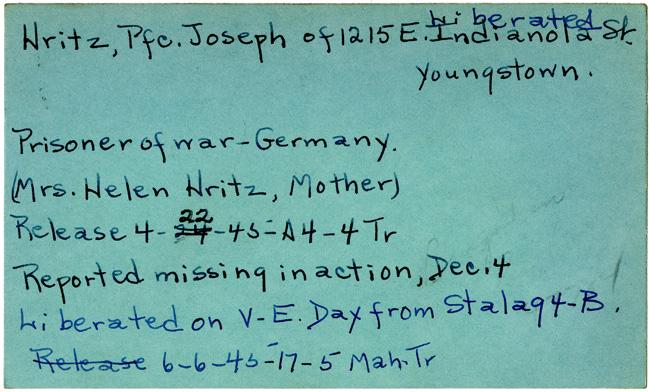 Liberated
Hritz, Pfc. Joseph of 1215 E. Indianola St.
Youngstown.
Prisoner of war-Germany.
(Mrs. Helen Hritz, Mother)
22
Release 4-24-45-A4-4 Tr
Reported missing in action, Dec. 4
Liberated on V-E. Day from Stalag 4-B.
Release 6-6-45-17-5 Mah. Tr